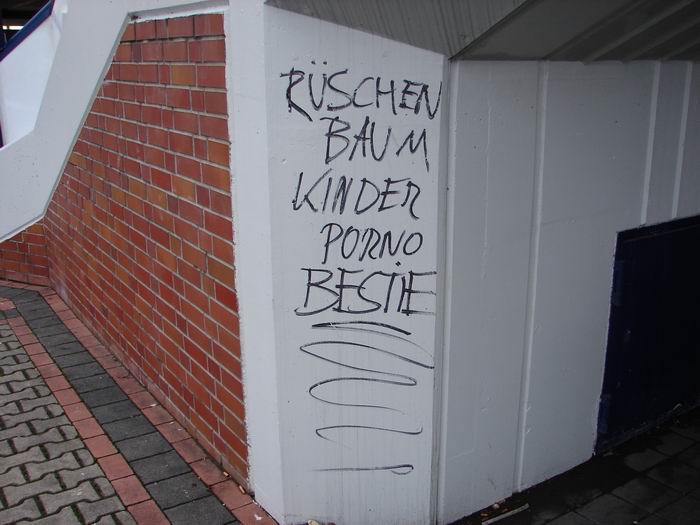 RÜSCHEN
BAUM
KINDER
PORNO
BESTIE